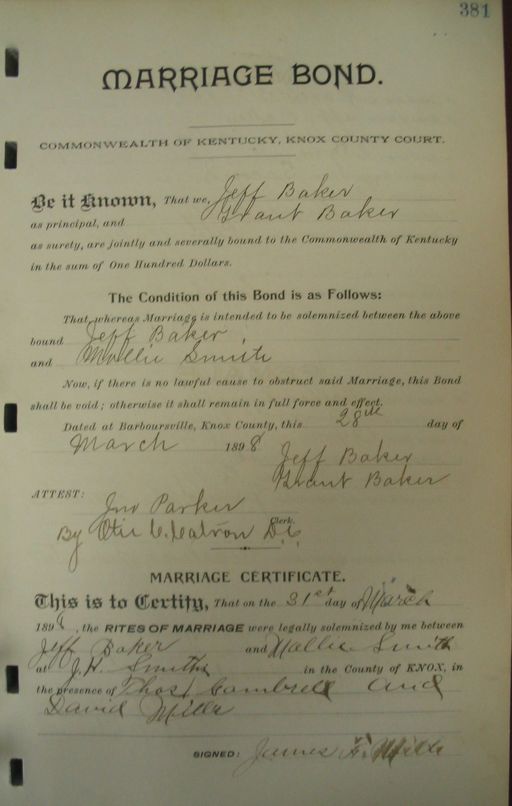 381
MARRIAGE BOND.
COMMONWEALTH OF KENTUCKY, KNOX COUNTY COURT.
Be it Known, That we, Jeff Baker
as principal, and Grant Baker
as surety, are jointly and severally bound to the Commonwealth of Kentucky
in the sum of One Hundred Dollars.
The Condition of this Bond is as Follows:
That, whereas Marriage is intended to be solemnized between the above
bound Jeff Baker,
and Mollie Smith
Now, if there is no lawful cause to obstruct said Marriage, this Bond
shall be void; otherwise it shall remain in full force and effect.
Dated at Barboursville, Knox County, this 28th day of
March 1898
Jeff Baker
Grant Baker
ATTEST:
Jno Parker
Clerk.
By Otis C. Catron D.C.
MARRIAGE CERTIFICATE.
This is to Certify, That on the 31st day of March
1898, the RITES OF MARRIAGE were legally solemnized by me between
Jeff Baker and Mollie Smith
at J.H. Smiths in the County of KNOX, in
the presence of Thos Cambrell and
David Mills
SIGNED: James F. Mills